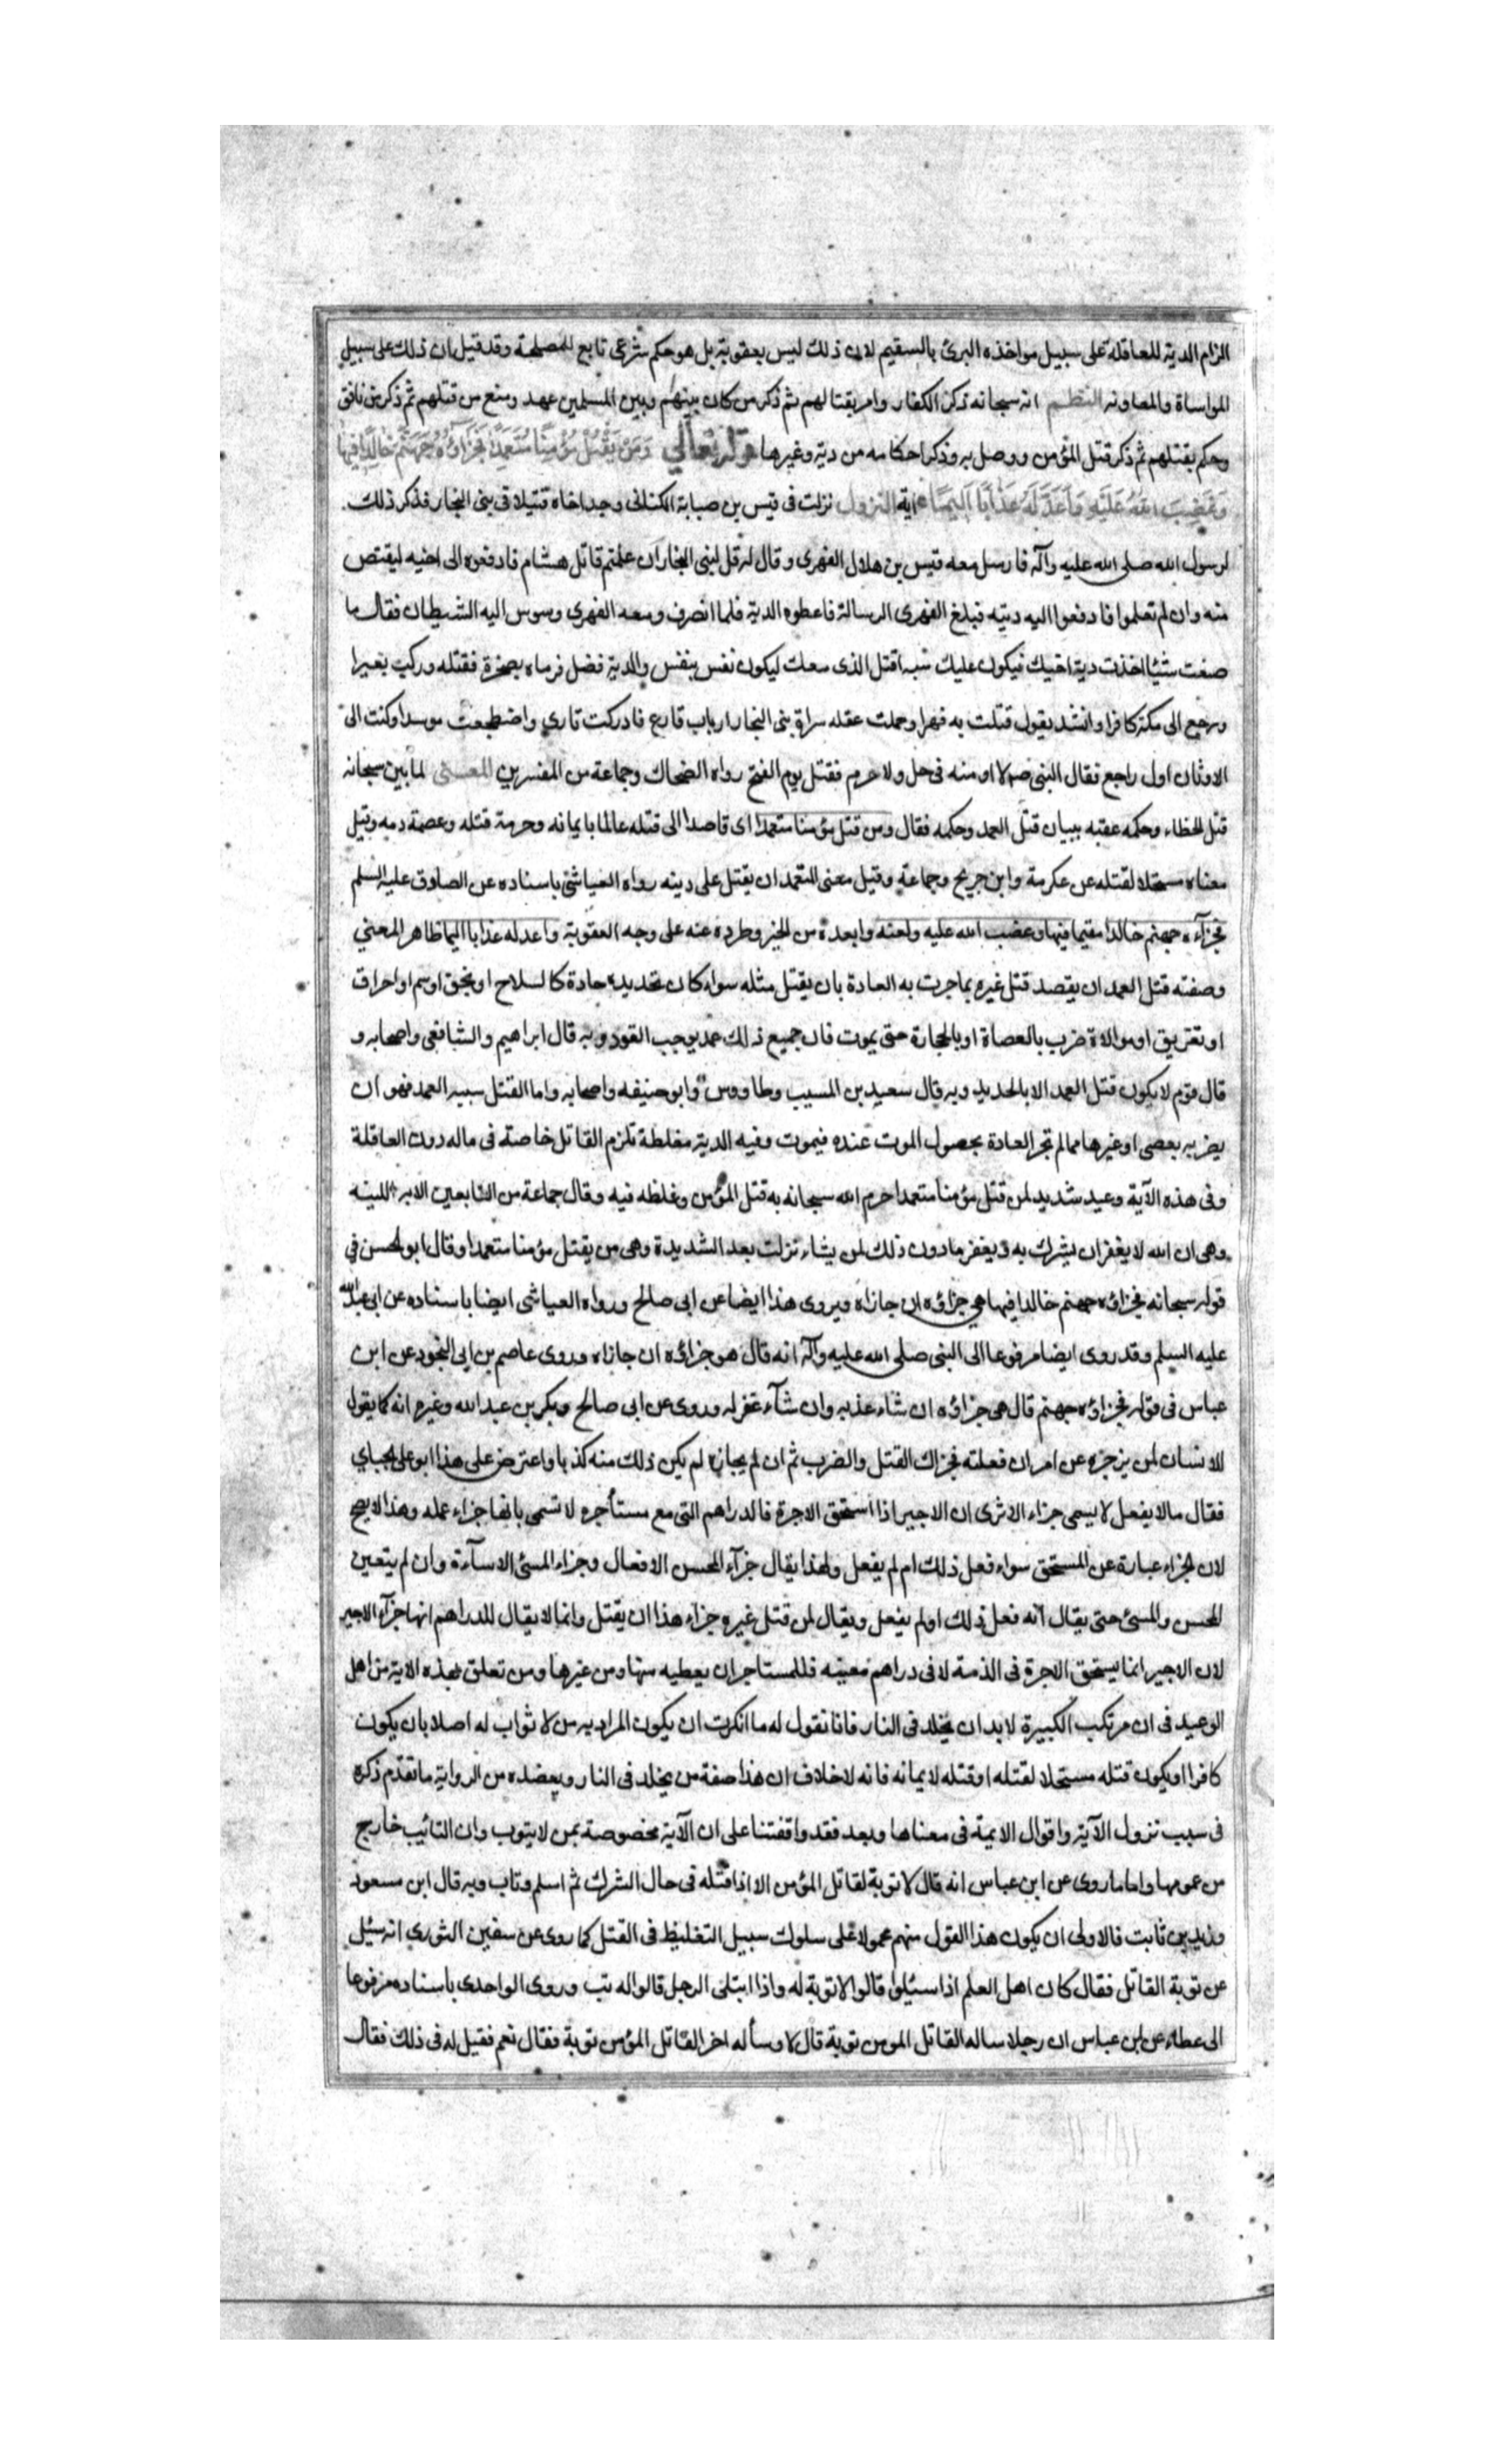 الزام الدية للعاقلة على سبيل مواخذه البرئ بالسقيم لان ذلك ليس بعقوبة بل هو حكم شرعى تابع للمصلحة وقد قيل ان ذلك على سبيل
المواساة والمعاونه النظم انه سبحانه ذكر الكفار وامر بقتالهم ثم ذكر من كان بينهم وبين المسلمين عهد ومنع من قتلهم ثم ذكر من نافق
وحكم بقتلهم ثم ذكر قتل المؤمن ووصل به وذكر احكامه من دية وغيرها قوله تعالى وَمَنْ يَقْتُلْ مُؤْمِنًا مُتَعَمِّدًا فَجَزَآؤُهُ جَهَنَّمُ خَالِدًا فِيهَا
وَغَضِبَ اللهُ عَلَيْهِ وَاَعَدَّ لَهُ عَذَابًا اَلِيمًا اية النزول نزلت فى قيس بن صبابة الكنانى وجد اخاه قتيلا فى بنى النجار فذكر ذلك
لرسول الله صلى الله عليه وآله فارسل معه قيس بن هلال الفهرى وقال له قل لبنى النجار ان علمتم قاتل هشام فادفعوه الى اخيه ليقتص
منه وان لم تعلموا فادفعوا اليه ديته فبلغ الفهرى الرسالة فاعطوه الدية فلما انصرف ومعه الفهرى وسوس اليه الشيطان فقال ما
صنعت شيئا اخذت دية اخيك فيكون عليك سبه اقتل الذى معك ليكون نفس بنفس والدية فضل فرماه بصخرة فقتله وركب بعيرا
ورجع الى مكة كافرا وانشد يقول قتلت به فهرا وحملت عقله سراة بنى النجار ارباب قارع فادركت ثارى واضطجعت موسدا وكنت الى
الاوثان اول راجع فقال النبى ص لا اومنه فى حل ولا حرم فقتل يوم الفتح رواه الضحاك وجماعة من المفسرين المعنى لما بين سبحانه
قتل الخطاء وحكمه عقبه ببيان قتل العمد وحكمه فقال ومن قتل مؤمنا متعمدا اى قاصدا الى قتله عالما بايمانه وحرمة قتله وعصمة دمه وقيل
معناه مستحلا لقتله عن عكرمة وابن جريح وجماعة وقيل معنى التعمد ان يقتل على دينه رواه العياشى باسناده عن الصادق عليه السلم
فجزآءه جهنم خالدا مقيما فيها وغضب الله عليه ولعنه وابعده من الخير وطرده عنه على وجه العقوبة واعد له عذابا اليما ظاهر المعني
وصفته قتل العمد ان يقصد قتل غيره بماجرت به العادة بان يقتل مثله سواء كان بحديدة حادة كالسلاح او بخنق او سم او احراق
او تغريق او موالاة ضرب بالعصاة او بالحجارة حتى يموت فان جميع ذلك عمد يوجب القود وبه قال ابراهيم والشافعى واصحابه و
قال قوم لا يكون قتل العمد الا بالحديد وبه قال سعيد بن المسيب وطاووس وابو حنيفه واصحابه واما القتل سبيه العمد فهو ان
يضربه بعصى او غيرها مما لم تجر العادة بحصول الموت عنده فيموت وفيه الدية مغلظة تلزم القاتل خاصة فى ماله دون العاقلة
وفى هذه الآية وعيد شديد لمن قتل مؤمنا متعمدا حرم الله سبحانه به قتل المؤمن وغلظه فيه وقال جماعة من التابعين الايه اللينه
وهى ان الله لا يغفر ان يشرك به ويغفر مادون ذلك لمن يشاء نزلت بعد الشديدة وهى من يقتل مؤمنا متعمدا وقال ابو الحسن في
قوله سبحانه فجزاؤه جهنم خالدا فيها هي جزاؤه ان جازاه ويروى هذا ايضا عن ابى صالح ورواه العياشى ايضا باسناده عن ابى عبد الله
عليه السلم وقد روى ايضا مرفوعا الى النبى صلى الله عليه وآله انه قال هو جزاؤه ان جازاه وروى عاصم بن ابى النجود عن ابن
عباس فى قوله فجزاؤه جهنم قال هى جزاؤه ان شاء عذبه وان شآء غفر له وروى عن ابى صالح وبكر بن عبد الله وغيره انه كما يقول
للانسان لمن يزجره عن امر ان فعلته فجزاك القتل والضرب ثم ان لم يجازه لم يكن ذلك منه كذبا واعترض على هذا ابو على الجباي
فقال مالا يفعل لا يسمى جزاء الا ترى ان الاجير اذا استحق الاجرة فالدراهم التى مع مستأجره لا تسمى بانها جزاء عمله وهذا لا يصح
لان الجزاء عبارة عن المستحق سواء فعل ذلك ام لم يفعل ولهذا يقال جزآء المحسن الافعال وجزاء المسئ الاسآءة وان لم يتعين
المحسن والمسئ حتى يقال انه فعل ذلك او لم يفعل ويقال لمن قتل غيره جزاء هذا ان يقتل وانما لا يقال للدراهم انها جزآء الاجير
لان الاجير انما يستحق الاجرة فى الذمة لا فى دراهم معينه فللمستاجر ان يعطيه منها ومن غيرها ومن تعلق بهذه الاية من اهل
الوعيد فى ان مرتكب الكبيرة لابد ان يخلد فى النار فانا نقول له ما انكرت ان يكون المراد به من لا ثواب له اصلا بان يكون
كافرا او يكون قتله مستحلا لقتله او قتله لايمانه فانه لاخلاف ان هذا صفة من يخلد فى النار ويعضده من الرواية ما تقدم ذكره
فى سبب نزول الآية واقوال الايمة فى معناها وبعد فقد وافقتنا على ان الآية مخصوصة بمن لا يتوب وان التائب خارج
من عومها واما ما روى عن ابن عباس انه قال لا توبة لقاتل المؤمن الا اذا قتله فى حال الشرك ثم اسلم وتاب وبه قال ابن مسعود
وزيد بن ثابت فالاولى ان يكون هذا القول منهم محمولا على سلوك سبيل التغليظ فى القتل كما روى عن سفين الثورى انه سئل
عن توبة القاتل فقال كان اهل العلم اذا سئيلوا قالوا لا توبة له واذا ابتلى الرجل قالوا له تب وروى الواحدى باسناده مرفوعا
الى عطاء عن ابن عباس ان رجلا ساله القاتل المومن توبة قال لا وسأله اخر القاتل المؤمن توبة فقال نعم فقيل له فى ذلك فقال